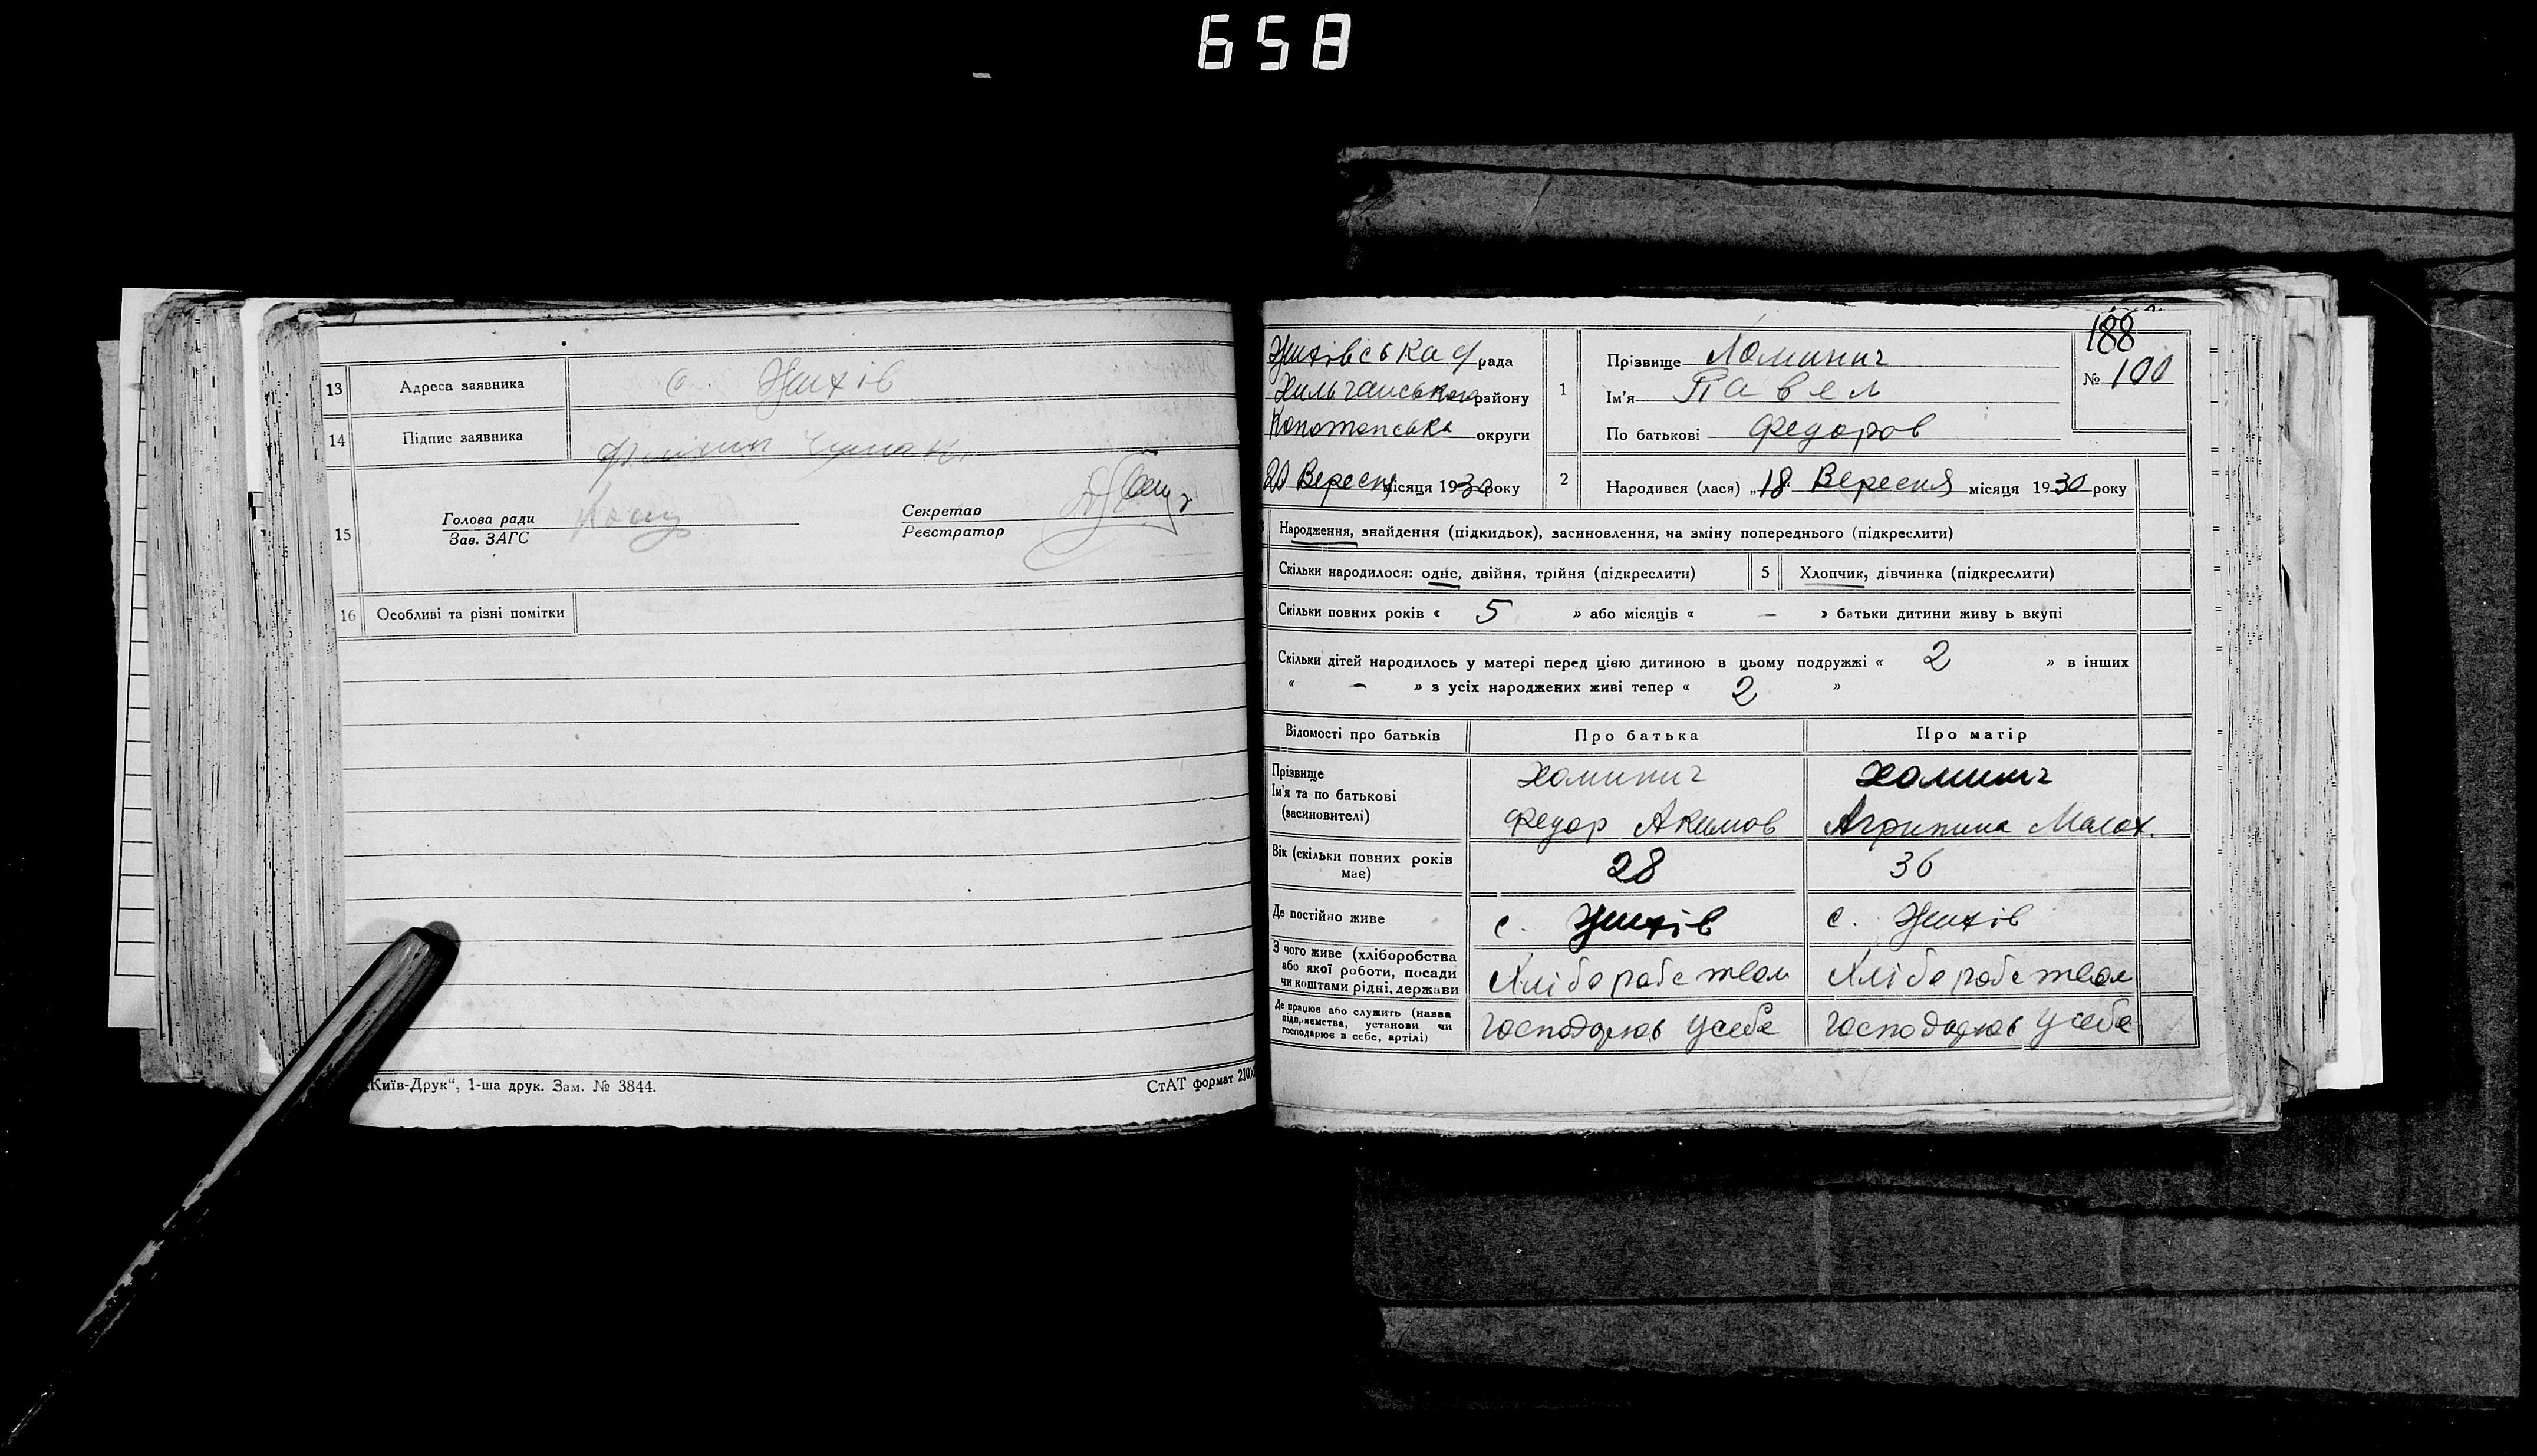 658
13 Адреса заявника с. Жихів
14 Підпис заявника
15 Голова ради
Зав. ЗАГС
Секретар
Реєстратор
16 Особливі та різні помітки
„Київ-Друк“, 1-ша друк. Зам. № 3844.
СтАТ формат 210х
188
№ 100
Жихівська с/рада
Хильчанського району
Конотопська округи
20 Вересн місяця 1930 року
1 Прізвище Хоминич
Ім'я Павел
По батькові Федоров
2 Народився (лася) „18 Вересня місяця 1930 року
Народження, знайдення (підкидьок), засиновлення, на зміну попереднього (підкреслити)
Скільки народилося: одне, двійня, трійня (підкреслити) 5 Хлопчик, дівчинка (підкреслити)
Скільки повних років « 5 » або місяців « – » батьки дитини живу ь вкупі
Скільки дітей народилось у матері перед цією дитиною в цьому подружжі « 2 » в інших
« – » з усіх народжених живі тепер « 2 »
Відомості про батьків Про батька Про матір
Прізвище Хоминич Хоминич
Ім'я та по батькові
(засиновителі) Федор Акимов Агрипина Малах.
Вік (скільки повних років
має) 28 36
Де постійно живе с. Жихів с. Жихів
З чого живе (хліборобства
або якої роботи, посади
чи коштами рідні, держави Хліборобством Хліборобством
Де працює або служить (назва
підприємства, установи чи
господарює в себе, артілі) господарює у себе господарює у себе